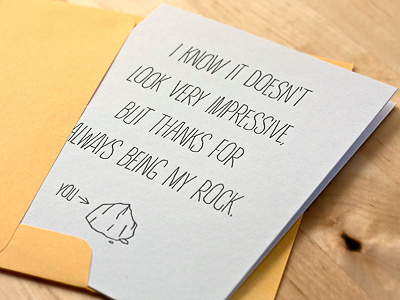 I KNOW IT DOESN'T
LOOK VERY IMPRESSIVE,
BUT THANKS FOR
ALWAYS BEING MY ROCK.
YOU →